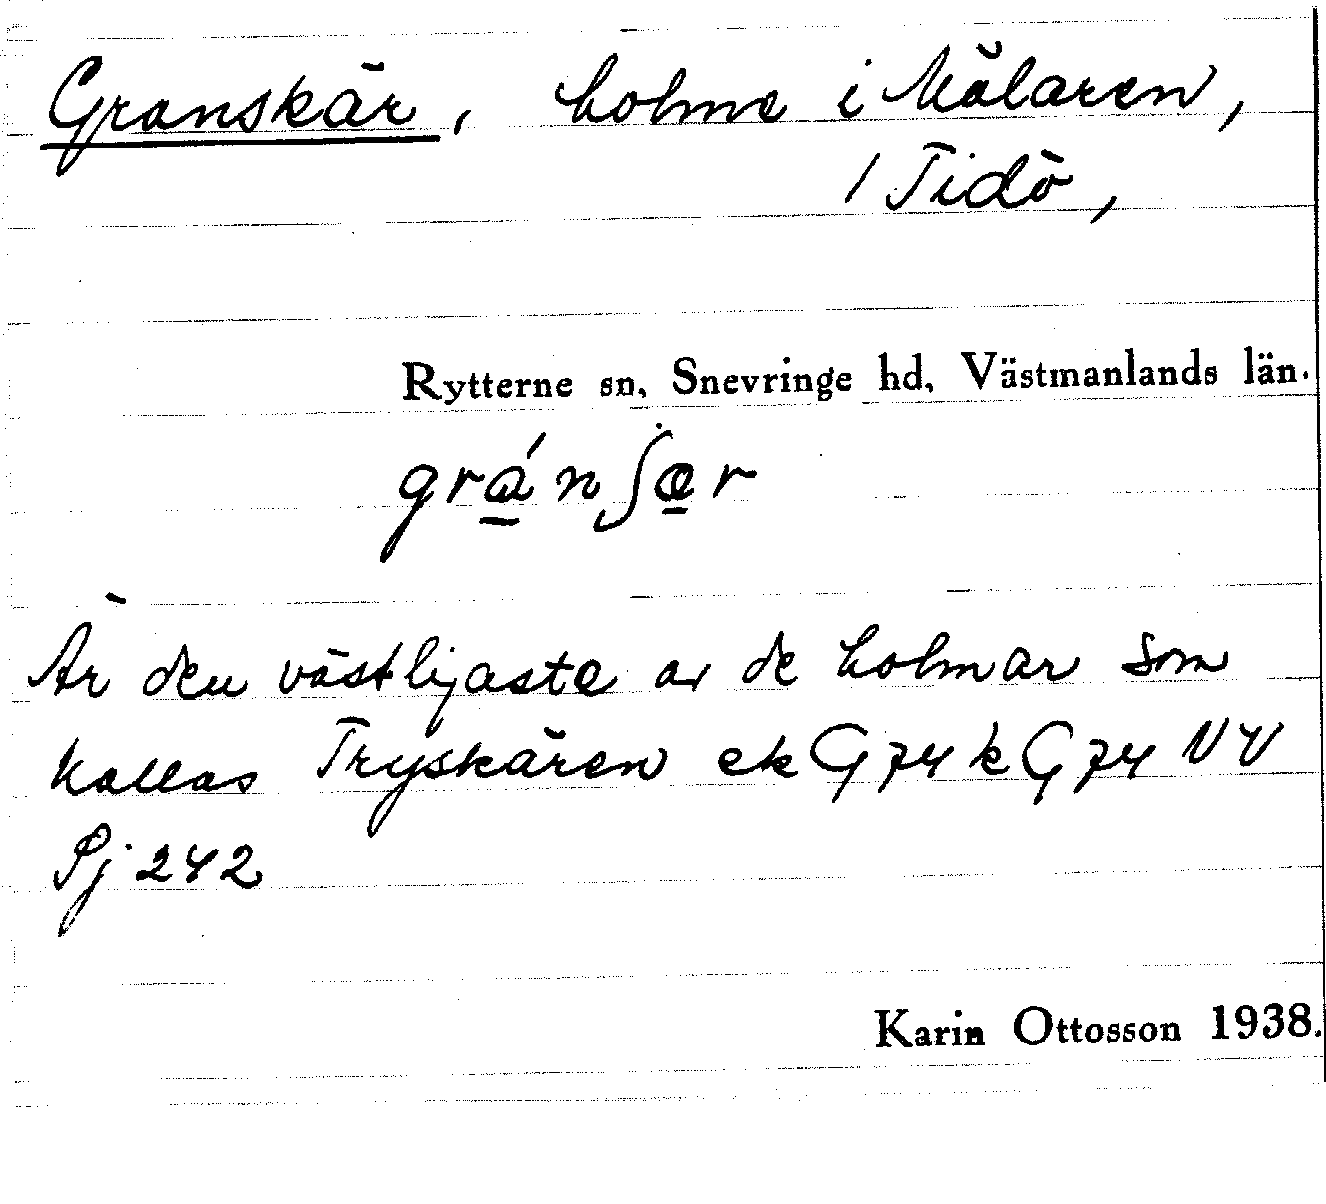 Granskär, holme i Mälaren,
/ Tidö,
Rytterne sn, Snevringe hd, Västmanlands län.
grá̱nʃæ̱r
Är den västligaste av de holmar som
kallas Tryskären ek G 74 k G 74 VV
Pj 242
Karin Ottosson 1938.